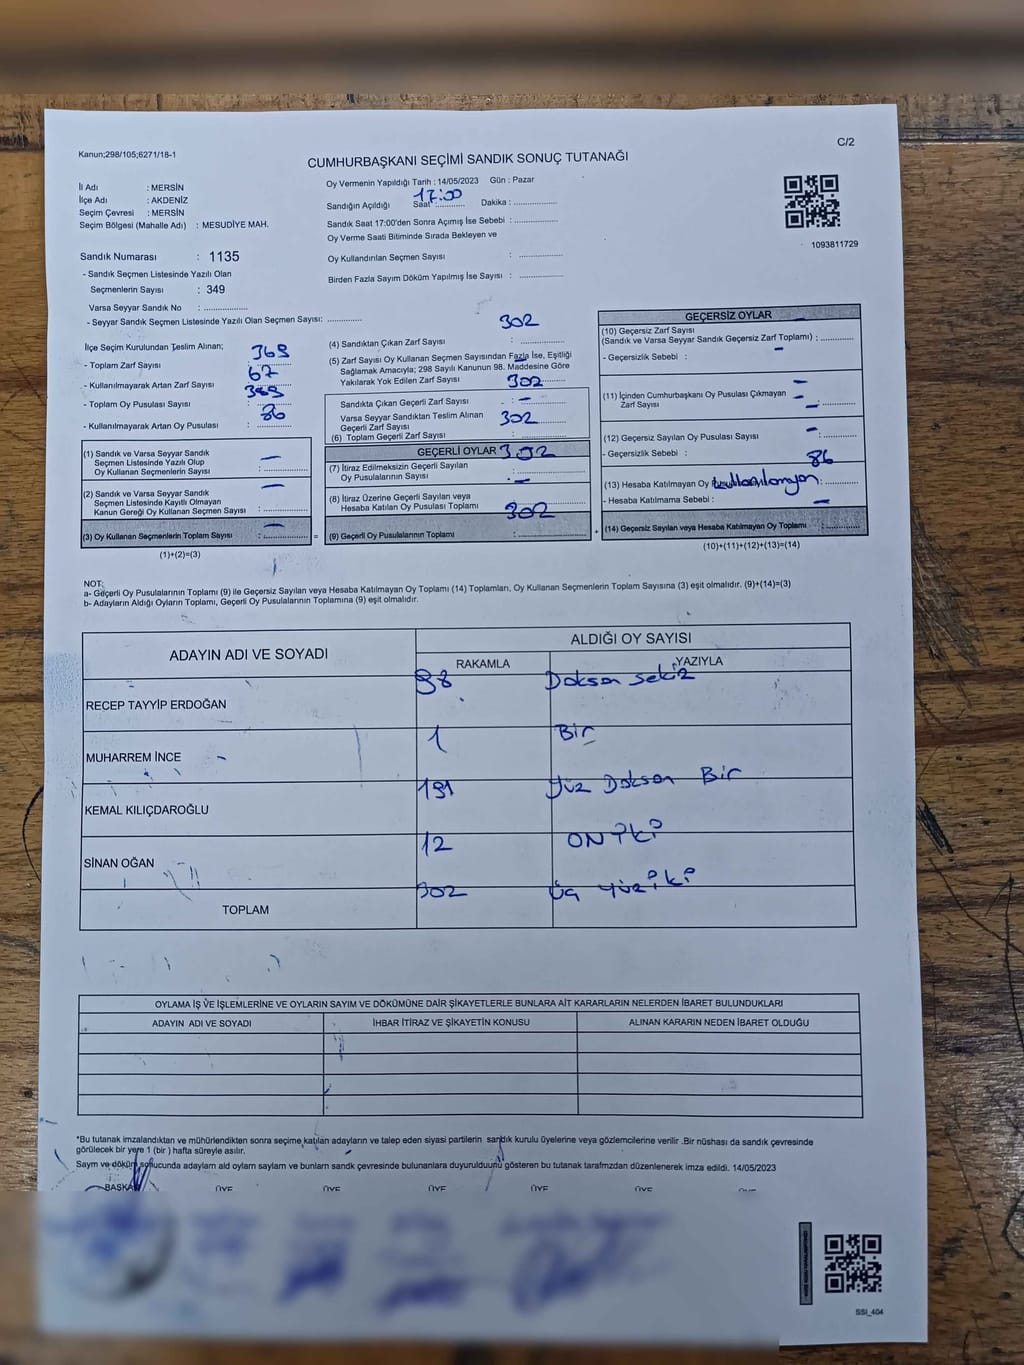 Kanun;298/105;6271/18-1
C/2
CUMHURBAŞKANI SEÇİMİ SANDIK SONUÇ TUTANAĞI
İl Adı : MERSİN
İlçe Adı : AKDENİZ
Seçim Çevresi : MERSİN
Seçim Bölgesi (Mahalle Adı) : MESUDİYE MAH.
Oy Vermenin Yapıldığı Tarih : 14/05/2023 Gün : Pazar
Sandığın Açıldığı Saat : 17:00 Dakika : ................
Sandık Saat 17:00'den Sonra Açımış İse Sebebi : ................
Oy Verme Saati Bitiminde Sırada Bekleyen ve
Oy Kullandırılan Seçmen Sayısı : ................
Birden Fazla Sayım Döküm Yapılmış İse Sayısı : ................
1093811729
Sandık Numarası : 1135
- Sandık Seçmen Listesinde Yazılı Olan
Seçmenlerin Sayısı : 349
Varsa Seyyar Sandık No : ................
- Seyyar Sandık Seçmen Listesinde Yazılı Olan Seçmen Sayısı: ............
İlçe Seçim Kurulundan Teslim Alınan;
- Toplam Zarf Sayısı 369
- Kullanılmayarak Artan Zarf Sayısı 67
- Toplam Oy Pusulası Sayısı 389
- Kullanılmayarak Artan Oy Pusulası : 86
(1) Sandık ve Varsa Seyyar Sandık
Seçmen Listesinde Yazılı Olup
Oy Kullanan Seçmenlerin Sayısı : —
(2) Sandık ve Varsa Seyyar Sandık
Seçmen Listesinde Kayıtlı Olmayan
Kanun Gereği Oy Kullanan Seçmen Sayısı : —
(3) Oy Kullanan Seçmenlerin Toplam Sayısı : —
(1)+(2)=(3)
302
(4) Sandıktan Çıkan Zarf Sayısı
(5) Zarf Sayısı Oy Kullanan Seçmen Sayısından Fazla İse, Eşitliği
Sağlamak Amacıyla; 298 Sayılı Kanunun 98. Maddesine Göre
Yakılarak Yok Edilen Zarf Sayısı 302
Sandıkta Çıkan Geçerli Zarf Sayısı : —
Varsa Seyyar Sandıktan Teslim Alınan
Geçerli Zarf Sayısı 302
(6) Toplam Geçerli Zarf Sayısı
GEÇERLİ OYLAR 302
(7) İtiraz Edilmeksizin Geçerli Sayılan
Oy Pusulalarının Sayısı : —
(8) İtiraz Üzerine Geçerli Sayılan veya
Hesaba Katılan Oy Pusulası Toplamı 302
= (9) Geçerli Oy Pusulalarının Toplamı
GEÇERSİZ OYLAR —
(10) Geçersiz Zarf Sayısı
(Sandık ve Varsa Seyyar Sandık Geçersiz Zarf Toplamı) : ............
- Geçersizlik Sebebi : —
(11) İçinden Cumhurbaşkanı Oy Pusulası Çıkmayan —
Zarf Sayısı —
(12) Geçersiz Sayılan Oy Pusulası Sayısı —
- Geçersizlik Sebebi : 86
(13) Hesaba Katılmayan Oy kullanılmayan
- Hesaba Katılmama Sebebi : —
+ (14) Geçersiz Sayılan veya Hesaba Katılmayan Oy Toplamı : ............
(10)+(11)+(12)+(13)=(14)
NOT:
a- Geçerli Oy Pusulalarının Toplamı (9) ile Geçersiz Sayılan veya Hesaba Katılmayan Oy Toplamı (14) Toplamları, Oy Kullanan Seçmenlerin Toplam Sayısına (3) eşit olmalıdır. (9)+(14)=(3)
b- Adayların Aldığı Oyların Toplamı, Geçerli Oy Pusulalarının Toplamına (9) eşit olmalıdır.
ADAYIN ADI VE SOYADI
ALDIĞI OY SAYISI
RAKAMLA YAZIYLA
RECEP TAYYİP ERDOĞAN 98 Doksan sekiz
MUHARREM İNCE 1 Bir
KEMAL KILIÇDAROĞLU 191 Yüz Doksan Bir
SİNAN OĞAN 12 ON iki
TOPLAM 302 Üç yüz iki
OYLAMA İŞ VE İŞLEMLERİNE VE OYLARIN SAYIM VE DÖKÜMÜNE DAİR ŞİKAYETLERLE BUNLARA AİT KARARLARIN NELERDEN İBARET BULUNDUKLARI
ADAYIN ADI VE SOYADI İHBAR İTİRAZ VE ŞİKAYETİN KONUSU ALINAN KARARIN NEDEN İBARET OLDUĞU
*Bu tutanak imzalandıktan ve mühürlendikten sonra seçime katılan adayların ve talep eden siyasi partilerin sandık kurulu üyelerine veya gözlemcilerine verilir .Bir nüshası da sandık çevresinde
görülecek bir yere 1 (bir ) hafta süreyle asılır.
Sayım ve döküm sonucunda adaylam ald oylam saylam ve bunlam sandk çevresinde bulunanlara duyurulduunu gösteren bu tutanak tarafmzdan düzenlenerek imza edildi. 14/05/2023
BAŞKAN ÜYE ÜYE ÜYE ÜYE ÜYE
SSI_404